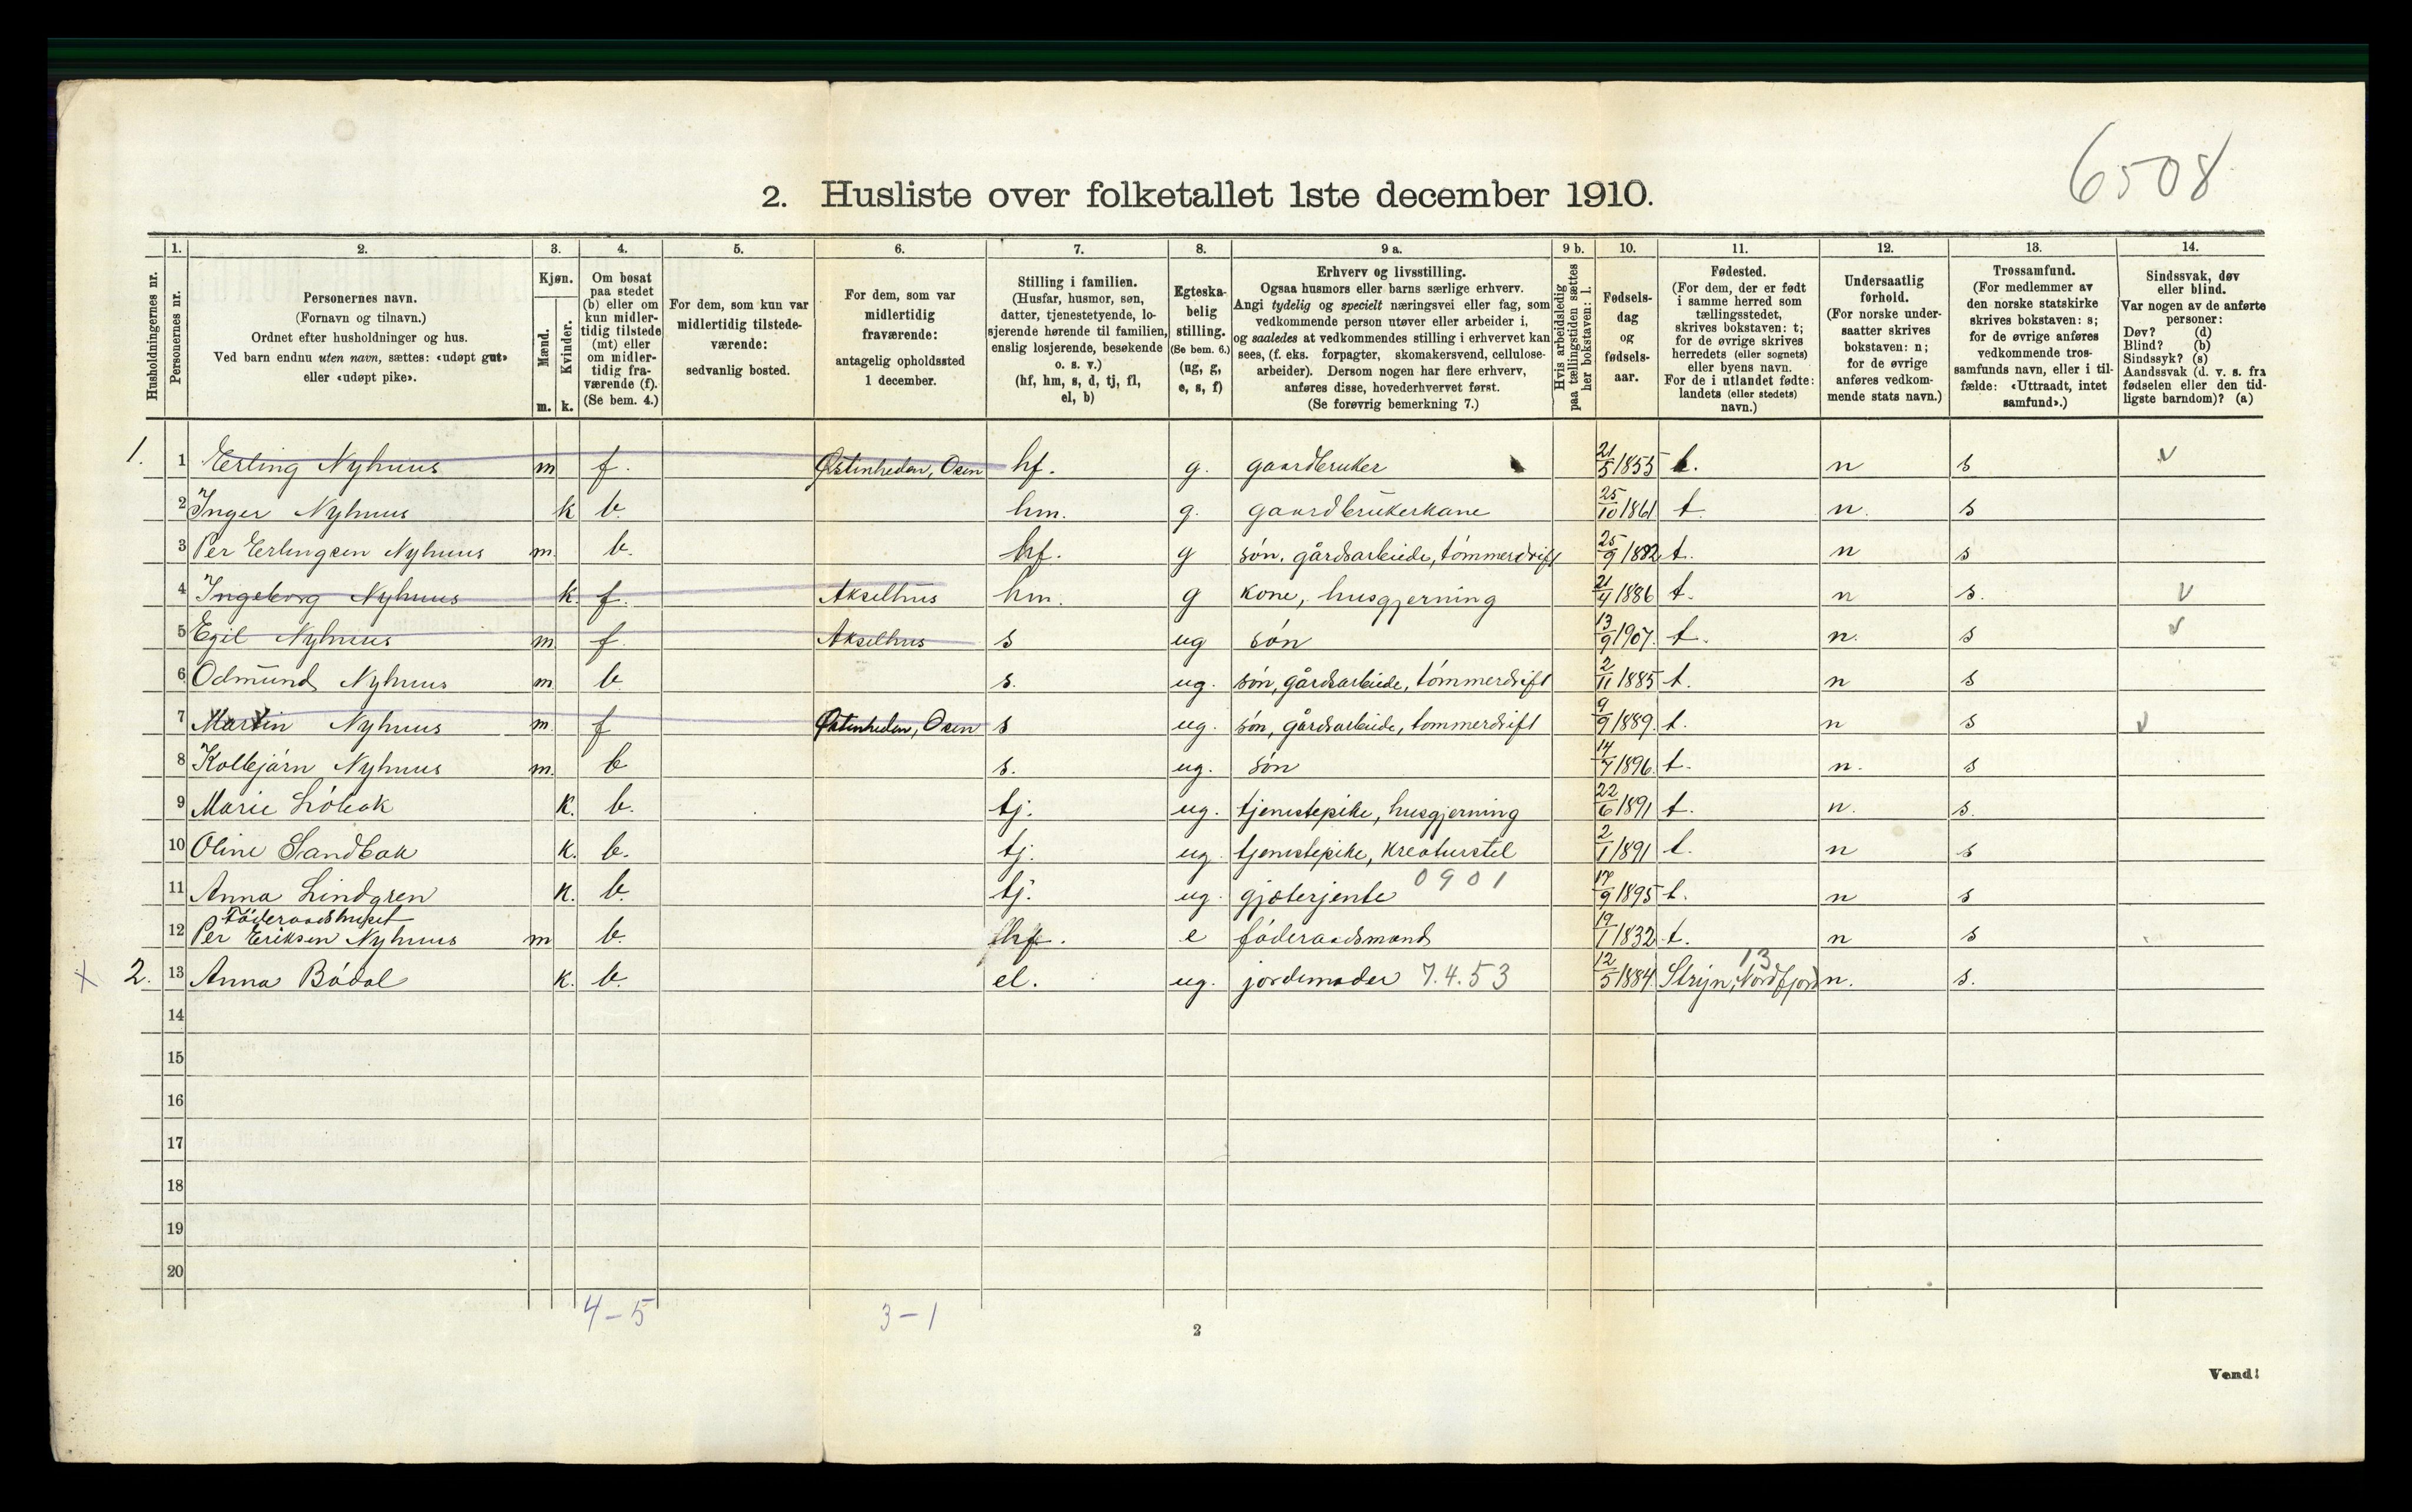 6508
2. Husliste over folketallet 1ste december 1910.
Husholdningernes nr.
1.
Personernes nr.
2.
Personernes navn.
(Fornavn og tilnavn.)
Ordnet efter husholdninger og hus.
Ved barn endnu uten navn, sættes: «udøpt gut»
eller «udøpt pike».
3.
Kjøn.
Mænd.
m.
Kvinder.
k.
4.
Om bosat
paa stedet
(b) eller om
kun midler-
tidig tilstede
(mt) eller
om midler-
tidig fra-
værende (f).
(Se bem. 4.)
5.
For dem, som kun var
midlertidig tilstede-
værende:
sedvanlig bosted.
6.
For dem, som var
midlertidig
fraværende:
antagelig opholdssted
1 december.
7.
Stilling i familien.
(Husfar, husmor, søn,
datter, tjenestetyende, lo-
sjerende hørende til familien,
enslig losjerende, besøkende
o. s. v.)
(hf, hm, s, d, tj, fl,
el, b)
8.
Egteska-
belig
stilling.
(Se bem. 6.)
(ug, g,
e, s, f)
9 a.
Erhverv og livsstilling.
Ogsaa husmors eller barns særlige erhverv.
Angi tydelig og specielt næringsvei eller fag, som
vedkommende person utøver eller arbeider i,
og saaledes at vedkommendes stilling i erhvervet kan
sees, (f. eks. forpagter, skomakersvend, cellulose-
arbeider). Dersom nogen har flere erhverv,
anføres disse, hovederhvervet først.
(Se forøvrig bemerkning 7.)
9 b.
Hvis arbeidsledig
paa tællingstiden sættes
her bokstaven: l.
10.
Fødsels-
dag
og
fødsels-
aar.
11.
Fødested.
(For dem, der er født
i samme herred som
tællingsstedet,
skrives bokstaven: t;
for de øvrige skrives
herredets (eller sognets)
eller byens navn.
For de i utlandet fødte:
landets (eller stedets)
navn.)
12.
Undersaatlig
forhold.
(For norske under-
saatter skrives
bokstaven: n;
for de øvrige
anføres vedkom-
mende stats navn.)
13.
Trossamfund.
(For medlemmer av
den norske statskirke
skrives bokstaven: s;
for de øvrige anføres
vedkommende tros-
samfunds navn, eller i til-
fælde: «Uttraadt, intet
samfund».)
14.
Sindssvak, døv
eller blind.
Var nogen av de anførte
personer:
Døv? (d)
Blind? (b)
Sindssyk? (s)
Aandssvak (d. v. s. fra
fødselen eller den tid-
ligste barndom)? (a)
1. 1 Erling Nyhuus m f. Østenheden, Osen hf. g. gaardbruker 21/5 1855 t. n s v
2 Inger Nyhuus k b. hm. g. gaardbrukerkane 25/10 1861 t. n. s
3 Per Erlingsen Nyhuus m. b. hf. g søn. gårdsarbeide, tømmerdrift 25/9 1882 t. n s
4 Ingeborg Nyhuus k. f. Akselhus hm. g kone, husgjerning 21/4 1886 t. n s. v
5 Egil Nyhuus m f. Akselhus s ug søn 13/9 1907. t. n. s v
6 Odmund Nyhuus m. b. s. ug. søn, gårdsarbeide, tømmerdrift 2/11 1885 t. n s
7 Martin Nyhuus m. f Østenheden, Osen s ug. søn, gårdsarbeide, tømmerdrift 9/9 1889. t. n s v
8 Kolbjørn Nyhuus m. b s. ug. søn 14/7 1896. t. n. s
9 Marie Løbak k. b. tj. ug. tjenestepike, husgjerning 22/6 1891 t. n. s.
10 Oline Sandbak k. b. tj. ug. tjenestepike, kreaturstel 2/1 1891 t. n s
11 Anna Lindgren k. b. tj. ug. gjæterjente 0901 17/9 1895 t. n s
Føderaadshuset
12 Per Eriksen Nyhuus m b. hf. e føderaadsmand 19/1 1832 t. n s
13
x 2. 13 Anna Bødal k. b. el. ug. jordemoder 7.4.53 12/5 1884. Stryn, Nordfjord n. s.
14
15
16
17
18
19
20
4-5
3-1
2
Vend!